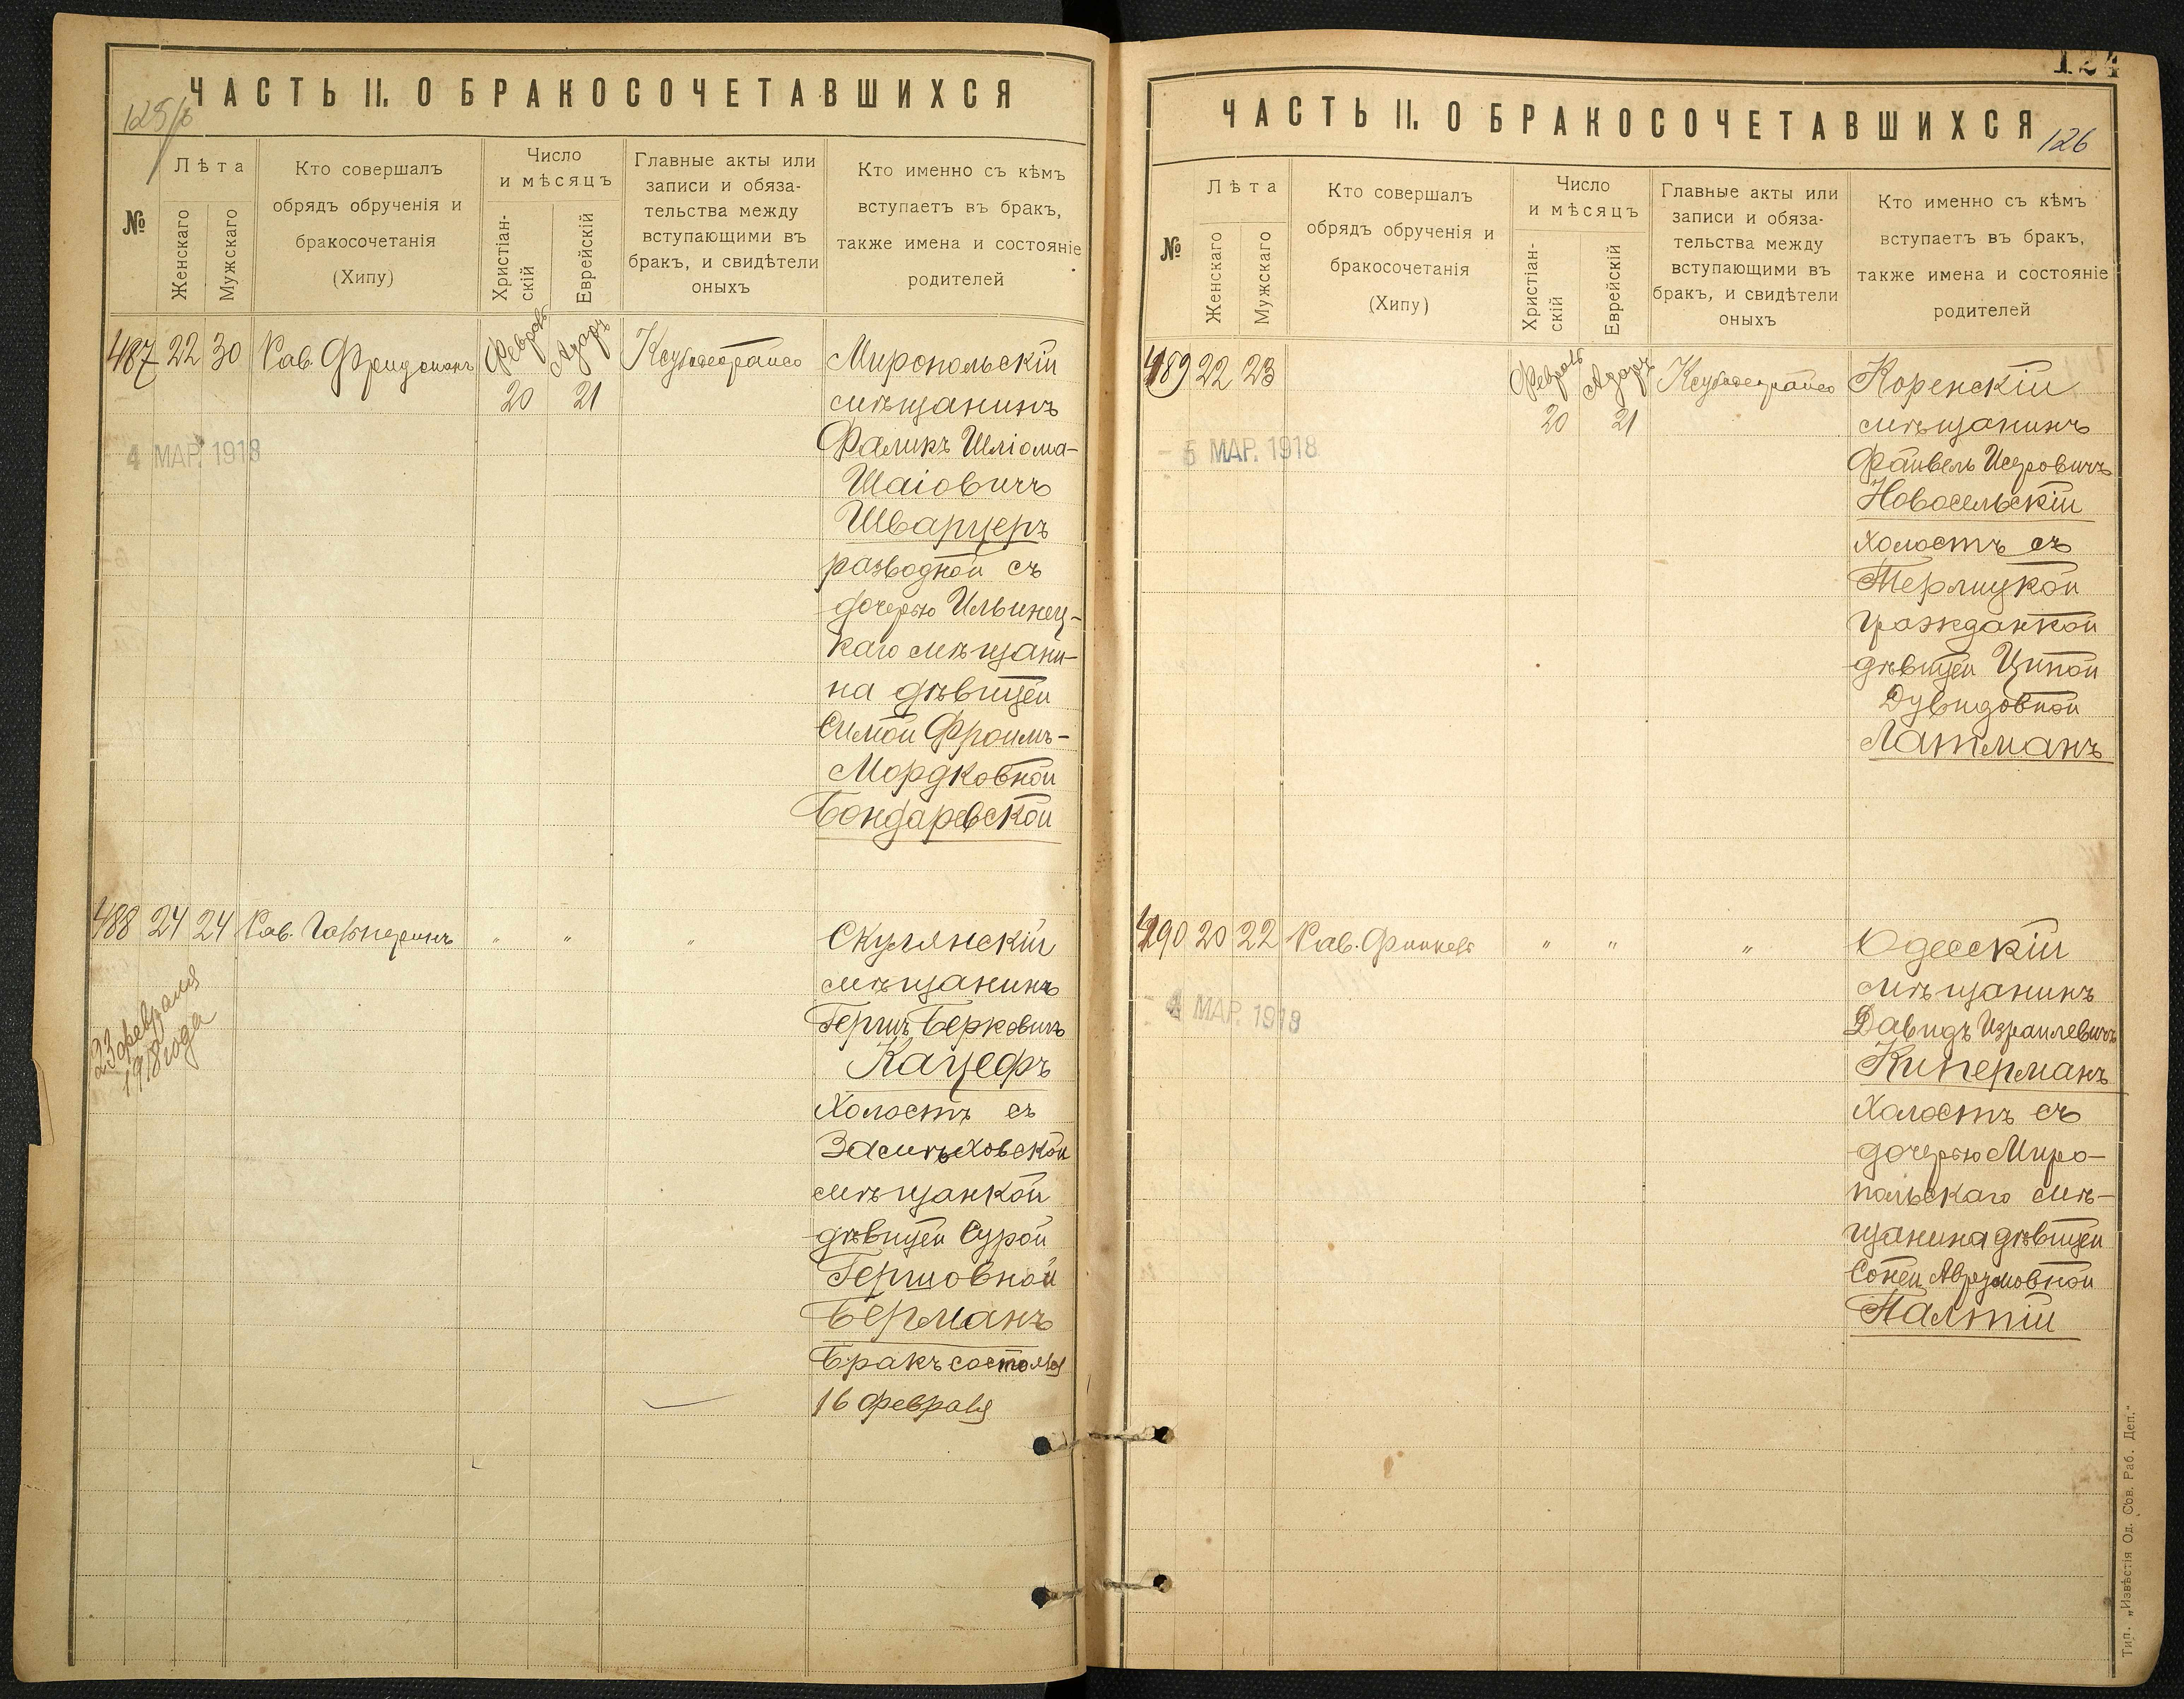 ЧАСТЬ II. О БРАКОСОЧЕТАВШИХСЯ
№
Лѣта
Женскаго
Мужскаго
Кто совершалъ
обрядъ обрученія и
бракосочетанія
(Хипу)
Число
и мѣсяцъ
Христіан-
скій
Еврейскій
Главные акты или
записи и обяза-
тельства между
вступающими въ
бракъ, и свидѣтели
оныхъ
Кто именно съ кѣмъ
вступаетъ въ бракъ,
также имена и состояніе
родителей
487 22 30 Рав. Фридманъ
Февраль
20
Адаръ
21
4 МАР. 1918
Миропольскій
мѣщанинъ
Фаликъ Шліома-
Шаіовичъ
Шварцеръ
разводной съ
дочерью Ильинец-
каго мѣщани-
на дѣвицей
Симой Фроимъ-
Мордковной
Бондаревской
488 24 24 Рав. Гальперинъ " " "
23 февраля
1918 года
Скулянскій
мѣщанинъ
Гершъ Берковичъ
Кацефъ
холостъ съ
Засмѣховской
мѣщанкой
дѣвицей Сурой
Гершовной
Берманъ
Бракъ состоялся
16 февраля
124
ЧАСТЬ II. О БРАКОСОЧЕТАВШИХСЯ
126
№
Лѣта
Женскаго
Мужскаго
Кто совершалъ
обрядъ обрученія и
бракосочетанія
(Хипу)
Число
и мѣсяцъ
Христіан-
скій
Еврейскій
Главные акты или
записи и обяза-
тельства между
вступающими въ
бракъ, и свидѣтели
оныхъ
Кто именно съ кѣмъ
вступаетъ въ бракъ,
также имена и состояніе
родителей
489 22 23
Февраль
20
Адаръ
21
5 МАР. 1918
Коренскій
мѣщанинъ
Файвель Исеровичъ
Новосельскій
холостъ съ
Терлицкой
гражданкой
дѣвицей Ципой
Дувидовной
Латманъ
490 20 22 Рав. Финкель " " "
4 МАР. 1918
Одесскій
мѣщанинъ
Давидъ Израилевичъ
Киперманъ
холостъ съ
дочерью Миро-
польскаго мѣ-
щанина дѣвицей
Соней Аврумовной
Палтій
Тип. „Извѣстія Од. Сов. Раб. Деп."